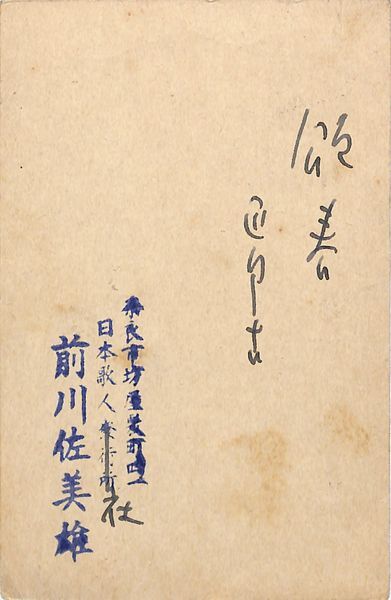 頌春
迎卯
奈良市坊屋敷町四一
日本歌人発行所社
前川佐美雄